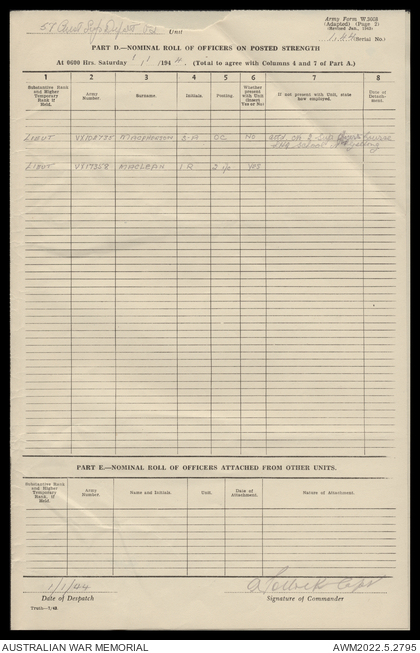 Unit
Army Form W.3008
(Adapted) (Page 2)
(Revised Jan., 1943)
(Serial No.)
PART D.—NOMINAL ROLL OF OFFICERS ON POSTED STRENGTH
At 0600 Hrs. Saturday 1/1/1944 (Total to agree with Columns 4 and 7 of Part A.)
1 2 3 4 5 6 7 8
Substantive Rank and Higher Temporary Rank if Held.
Army Number.
Surname.
Initials.
Posting.
Whether present with Unit (Insert Yes or No)
If not present with Unit, state how employed.
Date of Detachment.
LIEUT MACPHERSON OC NO
LIEUT MACLEAN 2 i/c YES
PART E.—NOMINAL ROLL OF OFFICERS ATTACHED FROM OTHER UNITS.
Substantive Rank and Higher Temporary Rank, if Held.
Army Number.
Name and Initials.
Unit.
Date of Attachment.
Nature of Attachment.
1/1/44
Date of Despatch
Signature of Commander
AUSTRALIAN WAR MEMORIAL
AWM2022.5.2795